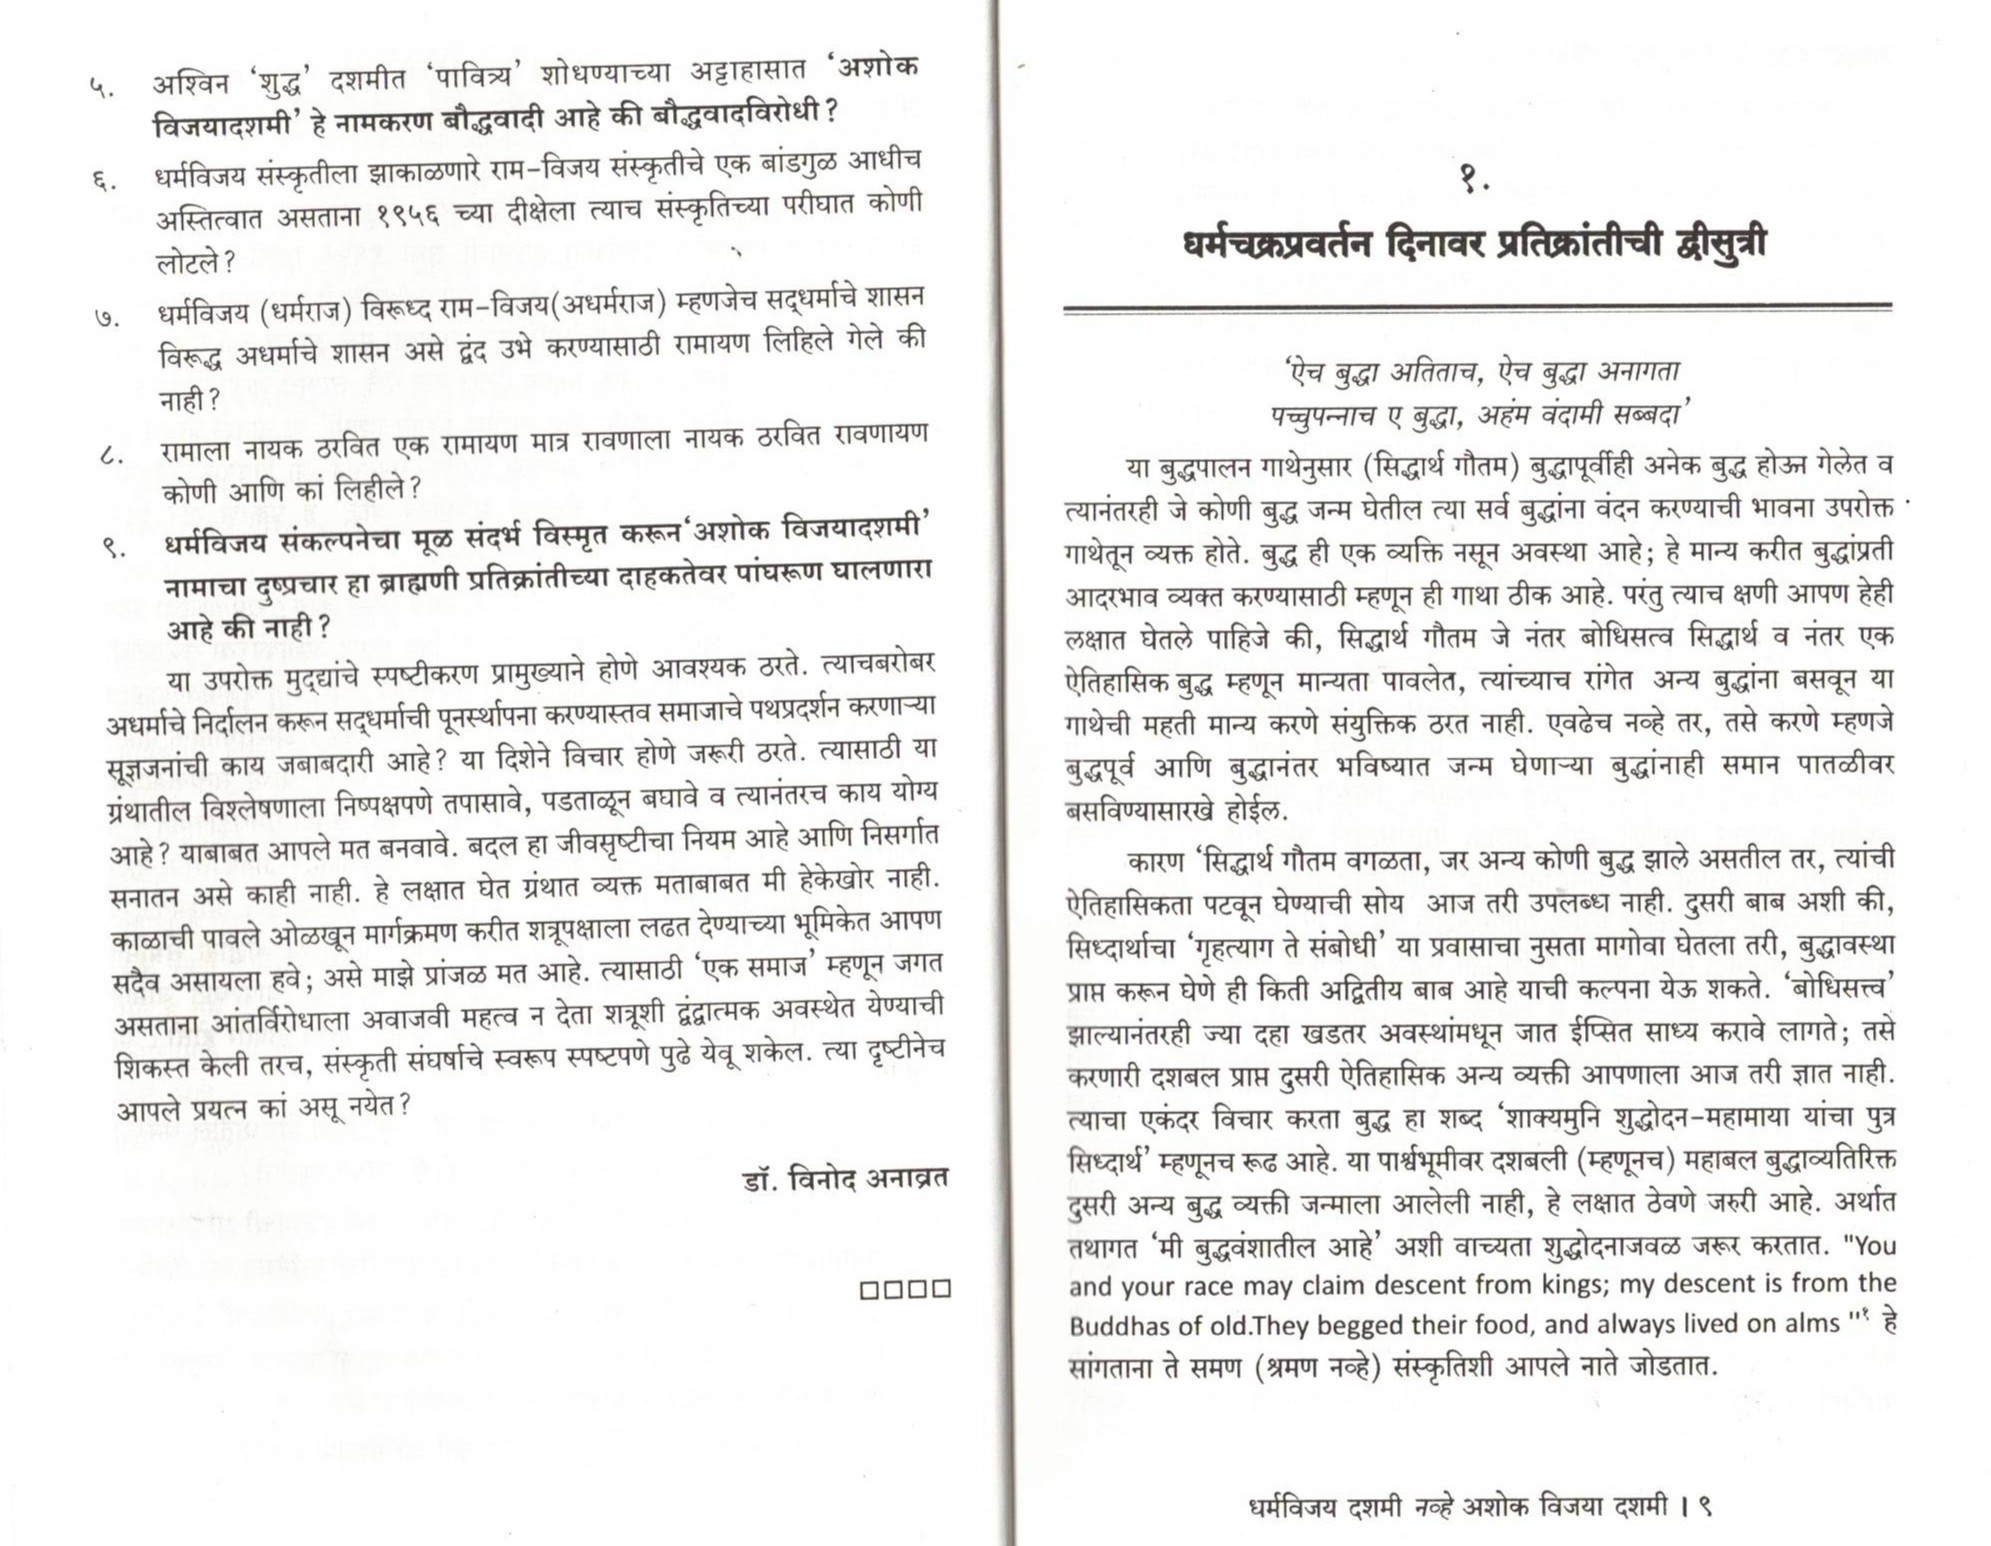 ५. अश्विन ‘शुद्ध’ दशमीत ‘पावित्र्य’ शोधण्याच्या अट्टाहासात ‘अशोक
विजयादशमी’ हे नामकरण बौद्धवादी आहे की बौद्धवादविरोधी?
६. धर्मविजय संस्कृतीला झाकाळणारे राम-विजय संस्कृतीचे एक बांडगुळ आधीच
अस्तित्वात असताना १९५६ च्या दीक्षेला त्याच संस्कृतिच्या परीघात कोणी
लोटले?
७. धर्मविजय (धर्मराज) विरूध्द राम-विजय(अधर्मराज) म्हणजेच सद्धर्माचे शासन
विरूद्ध अधर्माचे शासन असे द्वंद उभे करण्यासाठी रामायण लिहिले गेले की
नाही?
८. रामाला नायक ठरवित एक रामायण मात्र रावणाला नायक ठरवित रावणायण
कोणी आणि कां लिहीले?
९. धर्मविजय संकल्पनेचा मूळ संदर्भ विस्मृत करून‘अशोक विजयादशमी’
नामाचा दुष्प्रचार हा ब्राह्मणी प्रतिक्रांतीच्या दाहकतेवर पांघरूण घालणारा
आहे की नाही?
या उपरोक्त मुद्द्यांचे स्पष्टीकरण प्रामुख्याने होणे आवश्यक ठरते. त्याचबरोबर
अधर्माचे निर्दालन करून सद्धर्माची पूनर्स्थापना करण्यास्तव समाजाचे पथप्रदर्शन करणाऱ्या
सूज्ञजनांची काय जबाबदारी आहे? या दिशेने विचार होणे जरूरी ठरते. त्यासाठी या
ग्रंथातील विश्लेषणाला निष्पक्षपणे तपासावे, पडताळून बघावे व त्यानंतरच काय योग्य
आहे? याबाबत आपले मत बनवावे. बदल हा जीवसृष्टीचा नियम आहे आणि निसर्गात
सनातन असे काही नाही. हे लक्षात घेत ग्रंथात व्यक्त मताबाबत मी हेकेखोर नाही.
काळाची पावले ओळखून मार्गक्रमण करीत शत्रूपक्षाला लढत देण्याच्या भूमिकेत आपण
सदैव असायला हवे; असे माझे प्रांजळ मत आहे. त्यासाठी ‘एक समाज’ म्हणून जगत
असताना आंतर्विरोधाला अवाजवी महत्व न देता शत्रूशी द्वंद्वात्मक अवस्थेत येण्याची
शिकस्त केली तरच, संस्कृती संघर्षाचे स्वरूप स्पष्टपणे पुढे येवू शकेल. त्या दृष्टीनेच
आपले प्रयत्न कां असू नयेत?
डॉ. विनोद अनाव्रत
□□□□
१.
धर्मचक्रप्रवर्तन दिनावर प्रतिक्रांतीची द्वीसुत्री
‘ऐच बुद्धा अतिताच, ऐच बुद्धा अनागता
पच्चुपन्नाच ए बुद्धा, अहंम वंदामी सब्बदा’
या बुद्धपालन गाथेनुसार (सिद्धार्थ गौतम) बुद्धापूर्वीही अनेक बुद्ध होऊन गेलेत व
त्यानंतरही जे कोणी बुद्ध जन्म घेतील त्या सर्व बुद्धांना वंदन करण्याची भावना उपरोक्त
गाथेतून व्यक्त होते. बुद्ध ही एक व्यक्ति नसून अवस्था आहे; हे मान्य करीत बुद्धांप्रती
आदरभाव व्यक्त करण्यासाठी म्हणून ही गाथा ठीक आहे. परंतु त्याच क्षणी आपण हेही
लक्षात घेतले पाहिजे की, सिद्धार्थ गौतम जे नंतर बोधिसत्व सिद्धार्थ व नंतर एक
ऐतिहासिक बुद्ध म्हणून मान्यता पावलेत, त्यांच्याच रांगेत अन्य बुद्धांना बसवून या
गाथेची महती मान्य करणे संयुक्तिक ठरत नाही. एवढेच नव्हे तर, तसे करणे म्हणजे
बुद्धपूर्व आणि बुद्धानंतर भविष्यात जन्म घेणाऱ्या बुद्धांनाही समान पातळीवर
बसविण्यासारखे होईल.
कारण ‘सिद्धार्थ गौतम वगळता, जर अन्य कोणी बुद्ध झाले असतील तर, त्यांची
ऐतिहासिकता पटवून घेण्याची सोय आज तरी उपलब्ध नाही. दुसरी बाब अशी की,
सिध्दार्थाचा ‘गृहत्याग ते संबोधी’ या प्रवासाचा नुसता मागोवा घेतला तरी, बुद्धावस्था
प्राप्त करून घेणे ही किती अद्वितीय बाब आहे याची कल्पना येऊ शकते. ‘बोधिसत्त्व’
झाल्यानंतरही ज्या दहा खडतर अवस्थांमधून जात ईप्सित साध्य करावे लागते; तसे
करणारी दशबल प्राप्त दुसरी ऐतिहासिक अन्य व्यक्ती आपणाला आज तरी ज्ञात नाही.
त्याचा एकंदर विचार करता बुद्ध हा शब्द ‘शाक्यमुनि शुद्धोदन-महामाया यांचा पुत्र
सिध्दार्थ’ म्हणूनच रूढ आहे. या पार्श्वभूमीवर दशबली (म्हणूनच) महाबल बुद्धाव्यतिरिक्त
दुसरी अन्य बुद्ध व्यक्ती जन्माला आलेली नाही, हे लक्षात ठेवणे जरुरी आहे. अर्थात
तथागत ‘मी बुद्धवंशातील आहे’ अशी वाच्यता शुद्धोदनाजवळ जरूर करतात. "You
and your race may claim descent from kings; my descent is from the
Buddhas of old.They begged their food, and always lived on alms "१ हे
सांगताना ते समण (श्रमण नव्हे) संस्कृतिशी आपले नाते जोडतात.
धर्मविजय दशमी नव्हे अशोक विजया दशमी । ९